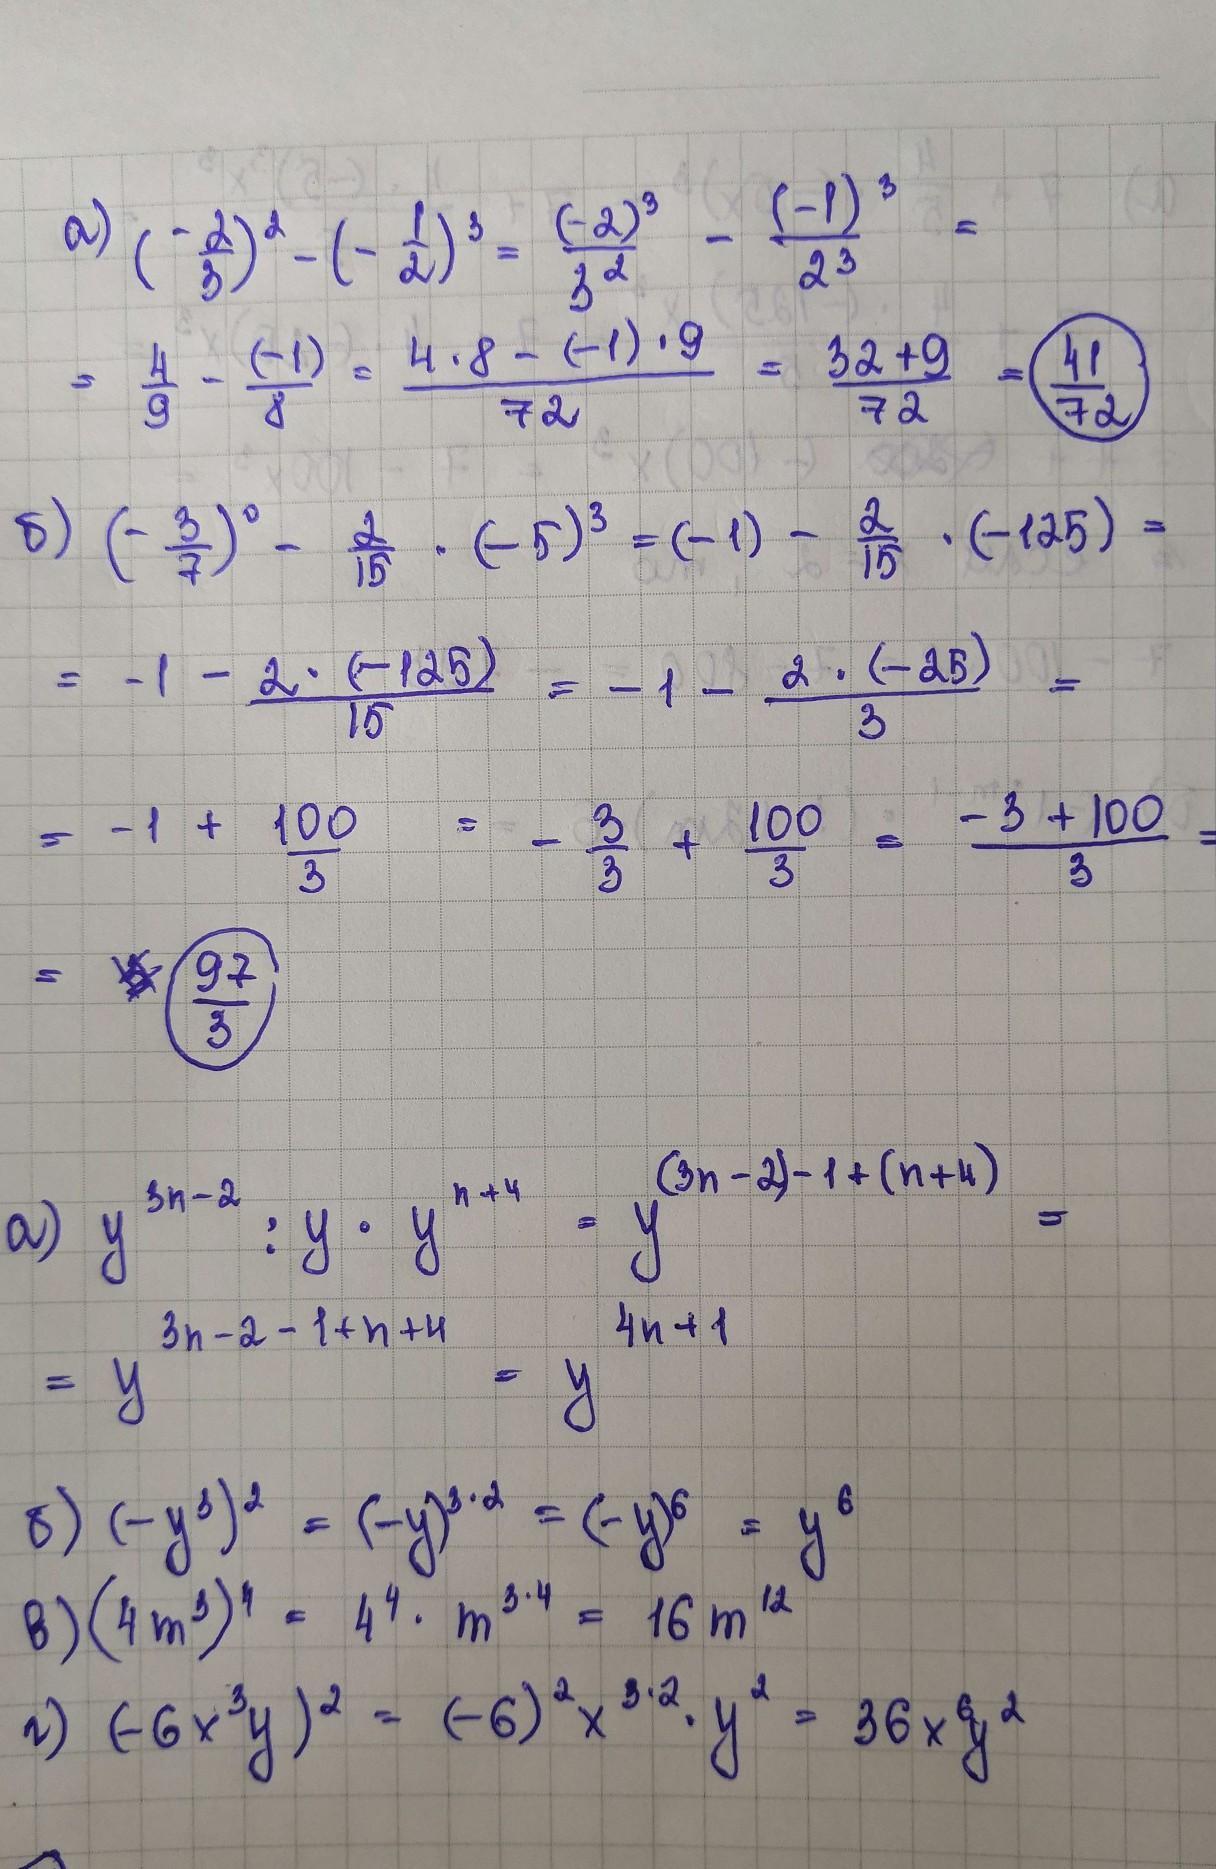 а) (-2/3)² - (-1/2)³ = (-2)³/3² - (-1)³/2³ =
= 4/9 - (-1)/8 = (4·8 - (-1)·9)/72 = (32+9)/72 = 41/72
б) (-3/7)⁰ - 2/15 · (-5)³ = (-1) - 2/15 · (-125) =
= -1 - (2·(-125))/15 = -1 - (2·(-25))/3 =
= -1 + 100/3 = -3/3 + 100/3 = (-3+100)/3 =
= 97/3
а) y^(3n-2) : y · y^(n+4) = y^((3n-2)-1+(n+4)) =
= y^(3n-2-1+n+4) = y^(4n+1)
б) (-y³)² = (-y)^(3·2) = (-y)⁶ = y⁶
в) (4m³)⁴ = 4⁴ · m^(3·4) = 16m¹²
г) (-6x³y)² = (-6)²x^(3·2) · y² = 36x⁶y²